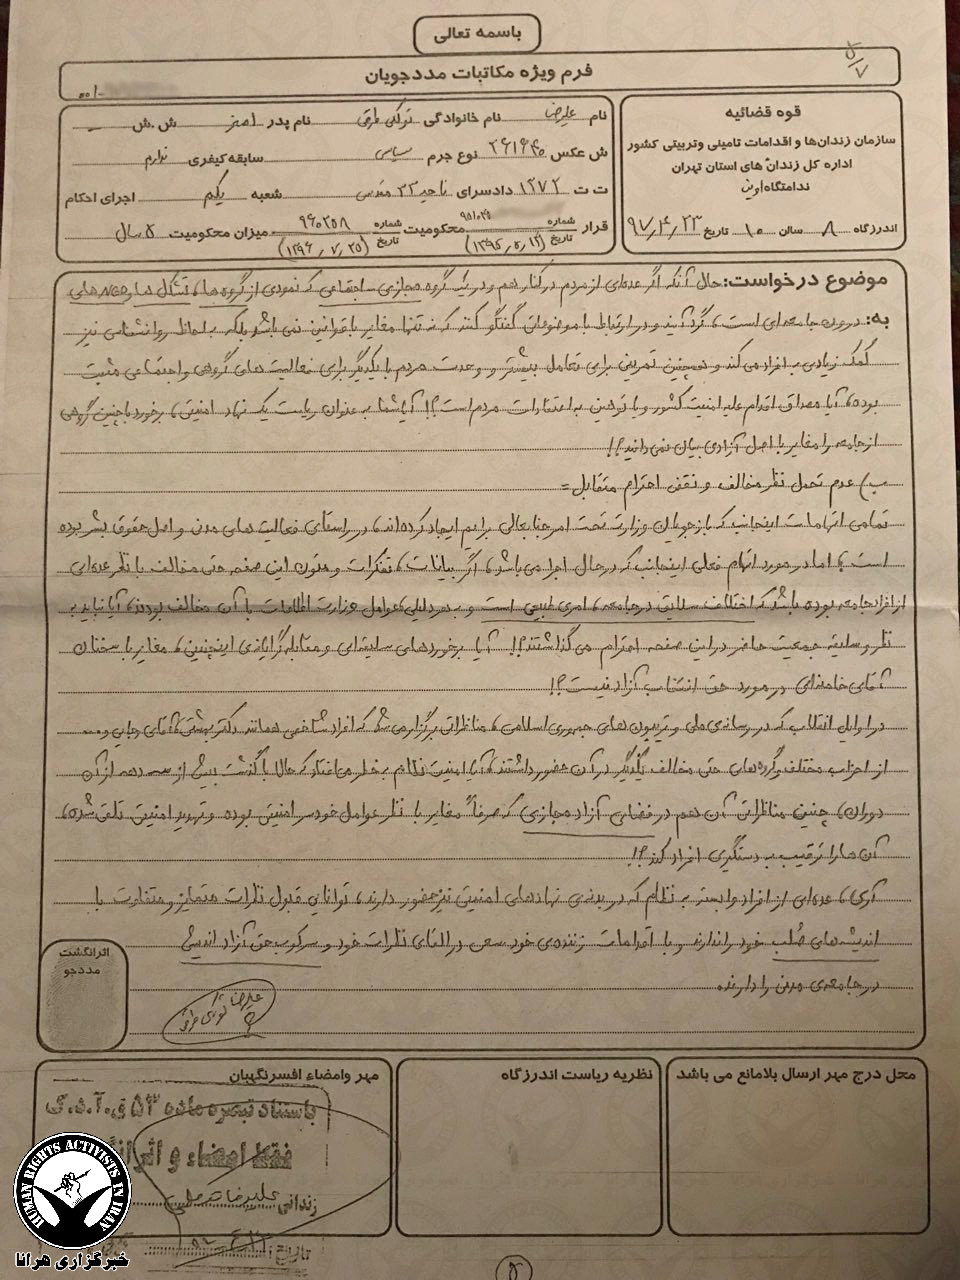 باسمه تعالی
فرم ویژه مکاتبات مددجویان
قوه قضائیه
سازمان زندان‌ها و اقدامات تامینی وتربیتی کشور
اداره کل زندان های استان تهران
ندامتگاه اوین
اندرزگاه ۸ سالن ۱۰ تاریخ ۹۷٫۴٫۲۳
نام علیرضا نام خانوادگی توکلی طرقی نام پدر اصغر ش.ش
ش عکس ۲۶۱۶۴۰ نوع جرم سیاسی سابقه کیفری ندارم
ت ت ۱۳۷۲ دادسرای ناحیه ۳۳ مقدس شعبه یکم اجرای احکام
قرار شماره تاریخ (۱۳۹۵٫۶٫۱۴) محکومیت شماره ۹۶۰۲۵۸ تاریخ (۱۳۹۶٫۷٫۲۵) میزان محکومیت ۵ سال
موضوع درخواست: حال آنکه اگر عده‌ای از مردم در کنار هم و در یک گروه مجازی ـ اجتماعی که نمودی از گروه ها، تشکل ها و جمع های
به: درون جامعه‌ای است، گردآیند و در ارتباط با موضوعاتی گفتگو کنند که نه تنها مغایر با قوانین نمی باشد بلکه به لحاظ روانشناسی نیز
کمک زیادی به افراد می کند و همچنین تمرینی برای تعامل بیشتر و وحدت مردم با یکدیگر برای فعالیت های گروهی و اجتماعی مثبت
بوده، آیا مصداق اقدام علیه امنیت کشور و یا توهین به اعتقادات مردم است؟! آیا شما به عنوان ریاست یک نهاد امنیتی، برخورد با چنین گروهی
از جامعه را مغایر با اصل آزادی بیان نمی دانید؟!
ب) عدم تحمل نظر مخالف و نقض احترام متقابل=
تمامی اتهامات اینجانب که بازجویان وزارت تحت امر جنابعالی برایم ایجاد کرده‌اند، در راستای فعالیت های مدنی و اصل حقوق بشر بوده
است، اما در مورد اتهام فعلی اینجانب که در حال اجرا می باشد، اگر بیانات، تفکرات و متون این صفحه حتی مخالف با نظر عده‌ای
از افراد جامعه بوده باشد که اختلاف سلایق در جامعه، امری طبیعی است و به هر دلیلی عوامل وزارت اطلاعات با آن مخالف بودند، آیا نباید به
نظر و سلیقه جمعیت حاضر در این صفحه احترام می گذاشتند؟! آیا برخوردهای سلیقه‌ای و مقابله گرایانه‌ی اینچنینی، مغایر با سخنان
آقای خامنه‌ای در مورد حق انتخاب آزاد نیست؟!
در اوایل انقلاب که در رسانه‌ی ملی و تریبون های جمهوری اسلامی، مناظراتی برگزار می شد که افراد شاخصی همانند دکتر بهشتی، آقای و...
از احزاب مختلف و گروه های حتی مخالف یکدیگر در آن حضور داشتند، آیا امنیت نظام به خطر می افتاد که حالا با گذشت بیش از سه دهه از آن
دوران، چنین مناظراتی آن هم در فضای آزاد مجازی که صرفاً مغایر با نظر عوامل خودسر امنیتی بوده و تهدید امنیتی تلقی شده،
آن ها را ترغیب به دستگیری افراد کند؟!
آری، عده‌ای از افراد وابسته به نظام که در بدنه‌ی نهادهای امنیتی نیز حضور دارند، توانایی قبول نظرات متمایز و متفاوت با
اندیشه های صُلب خود را ندارند و با اقدامات زننده‌ی خود سعی در القای نظرات خود و سرکوب حق آزاد اندیشی
در جامعه‌ی مدنی را دارند.
علیرضا توکلی طرقی
اثرانگشت
مددجو
محل درج مهر ارسال بلامانع می باشد
نظریه ریاست اندرزگاه
مهر وامضاء افسرنگهبان
باستناد تبصره ماده ۵۳ ق.آ.د.ک
فقط امضاء و اثر
زندانی علیرضا توکلی
تاریخ
۵
HUMAN RIGHTS ACTIVISTS IN IRAN
خبرگزاری هرانا